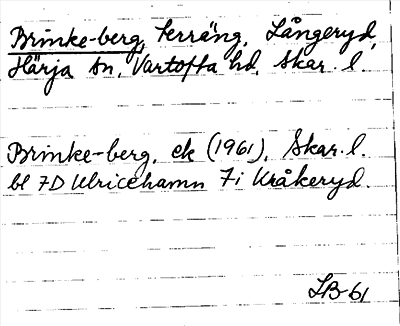 Brinke-berg, terräng, Långeryd,
Härja sn, Vartofta hd, Skar. l.
Brinke-berg, ek (1961), Skar. l.
bl 7D Ulricehamn 7i Kråkeryd.
LB-61